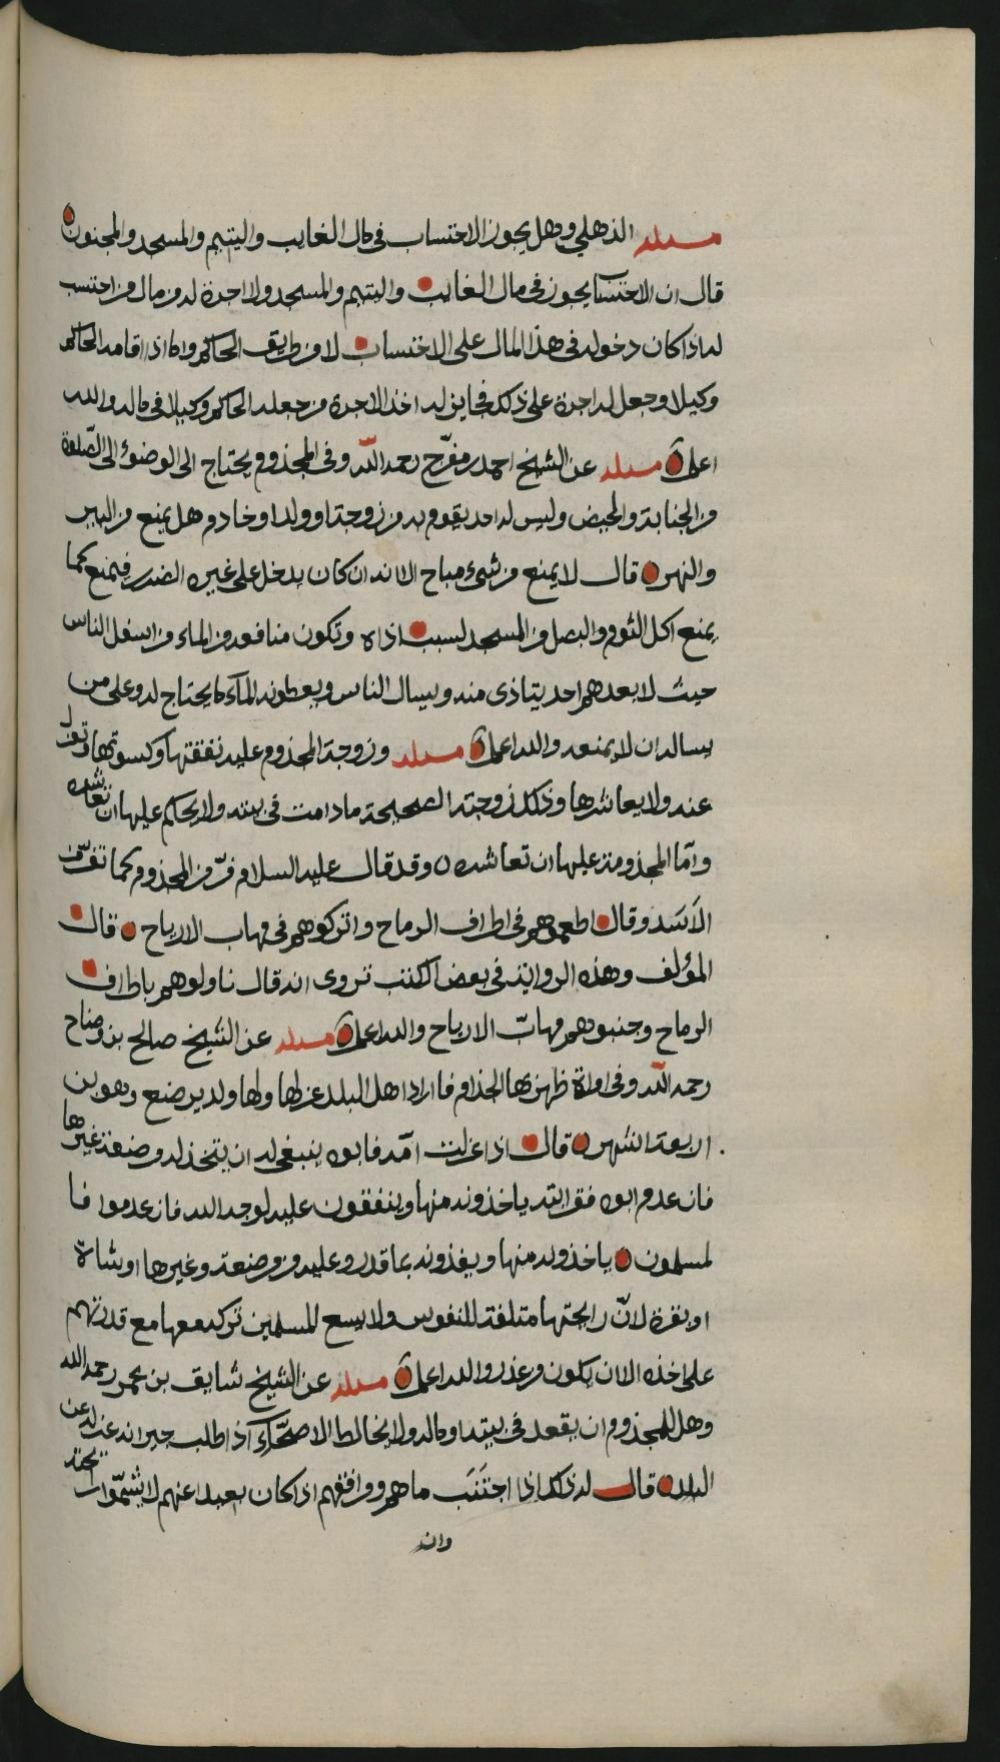 مسئلة الذهلي وهل يجوز الاحتساب في مال الغايب واليتيم والمسجد والمجنون
قال ان الاحتساب يجوز في مال الغايب واليتيم والمسجد ولا اجرة له من مال من احتسب
له اذا كان دخوله في هذا المال على الاحتساب لا من طريق الحاكم واما اذا اقامه الحاكم
وكيلا وجعل له اجرة على ذلك فجايز له اخذ الاجرة من جعله الحاكم وكيلا في ماله والله
اعلم مسئلة عن الشيخ احمد بن مفرّح رحمه اللّه وفي المجذوم يحتاج الى الوضوء الى الصّلوة
من الجنابة والحيض وليس له احد يقوم به من زوجة او ولد او خادم هل يمنع من البير
والنهر قال لا يمنع من شيء مباح الا انه ان كان يدخل على غيره الضرر فيمنع كما
يمنع اكل الثوم والبصل من المسجد لسبب اذاه وتكون منافعه من الماء من اسفل الناس
حيث لا بعدهم احد يتاذى منه ويسال الناس ويعطونه الماء ما يحتاج له وعلى من
يساله ان لا يمنعه والله اعلم مسئلة وزوجة المجذوم عليه نفقتها وكسوتها وتعزل
عنه ولا يعاشرها وذلك زوجته الصحيحة مادامت في بيته ولا يحكم عليها ان تعاشره
وامّا المجذومة عليها ان تعاشره وقد قال عليه السلام فرّ من المجذوم كما تفرّ من
الاَسَد وقال اطعموهم في اطراف الرماح واتركوهم في مهاب الارياح قال
المؤلف وهذه الرواية في بعض الكتب تروى انه قال ناولوهم باطراف
الرماح وجنبوهم مهابّ الارياح والله اعلم مسئلة عن الشيخ صالح بن وضاح
رحمه اللّه وفي امراة ظهر بها الجذام فاراد اهل البلد عزلها ولها ولد يرضع وهو بن
اربعة اشهر قال اذا عزلت امّه فابوه ينبغي له ان يتخذ له مرضعة غيرها
فان عدم ابوه فقرابته ياخذونه منها وينفقون عليه لوجه الله فان عدموا فا
لمسلمون ياخذونه منها ويغذونه بما قدروا عليه من مرضعة وغيرها او شاة
او بقرة لانّ رايحتها متلفة للنفوس ولا يسع المسلمين تركه معها مع قدرتهم
على اخذه الا ان يكون من عذر والله اعلم مسئلة عن الشيخ شايق بن عمر رحمه الله
وهل للمجذوم ان يقعد في بيته او ماله ولا يخالط الاصحّاء اذا طلب جيرانه عزله عن
البلد قال له ذلك اذا اجتَنَب ماهم ومرافقهم اذا كان بعيدا عنهم لا يشمّوا رايحته
وانه